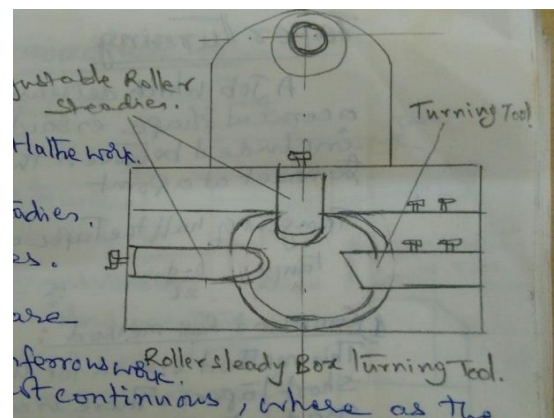 justable Roller
Steadies.
Turning Tool.
lathe work.
adies.
es.
are
nferrous work.
Roller steady Box Turning Tool.
st continuous, where as the